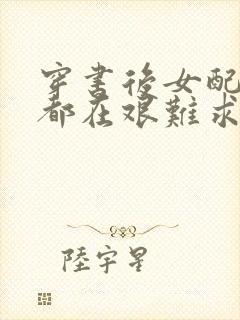 穿書後女配
都在艱難求
陸宇星